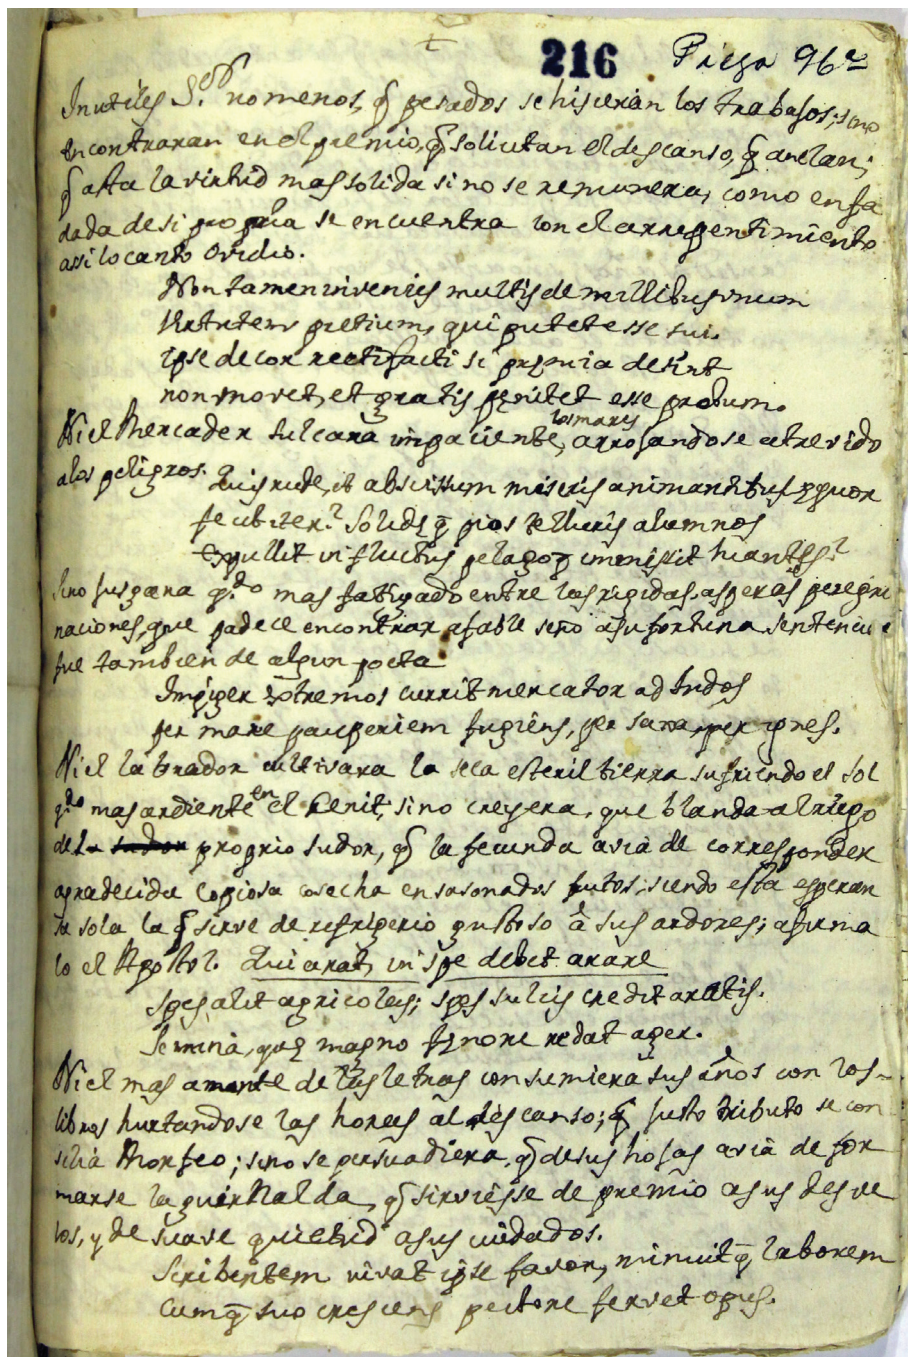 216 Pieza 96ª
Inutiles S.ᵒʳ no menos, q̃ pesados se hisieran los trabajos; sino
encontraran en el premio, q̃ solicitan el descanso, q̃ anelan;
q̃ asta la virtud mas solida si no se remunera, como enfa
dada de si propria se encuentra con el arrepentimiento
assi lo canto Ovidio.
Non tamen invenies multis de millibus unum
Virtutem pretium, qui putet esse sui.
ipse decor recti facti si premia desint
non movet, et gratis penitet esse probum.
Ni el Mercader sulcara impaciente, los mares arrojandose atrevido
a los peligros.
Quis rude, et abscissum miseris animantibus equor
fecit iter? Solideq̃ pios telluris alumnos
expullit in fluctus pelagoq̃ immissit hiantes?
Sino esperara q.ᵈᵒ mas fatigado entre las rigidas, asperas peregri
naciones, que padece encontrar afable seño a su fortuna sentencia
fue tambien de algun poeta
Impiger extremos currit mercator ad Indos
per mare pauperiem fugiens, per saxa, per ignes.
Ni el labrador cultivara la seca esteril tierra sufriendo el sol
q.ᵈᵒ mas ardiente en el Cenit, sino creyera, que blanda al riego
del su sudor proprio sudor, q̃ la fecunda avia de corresponder
agradecida copiosa cosecha en sasonados frutos; siendo esta esperan
za sola la q̃ sirve de refrigerio gustoso à sus ardores; afirma
lo el Apostol. Qui arat, in spe debet arare
Spes alit agricolas; spes sulcis credit aratis.
Semina, que magno fenore redat ager.
Ni el mas amante de las letras consumiera sus años con los
libros hurtandose las horas al descanso; q̃ justo tributo se con
silia Morfeo; sino se persuadiera, q̃ de sus hojas avia de for
marse la guirnalda, q̃ sirviesse de premio a sus desve
los, y de suave quietud a sus cuidados.
Scribentem iuvat ipse favor, minuitq̃ laborem
Cumq̃ suo crescens pectore fervet opus.